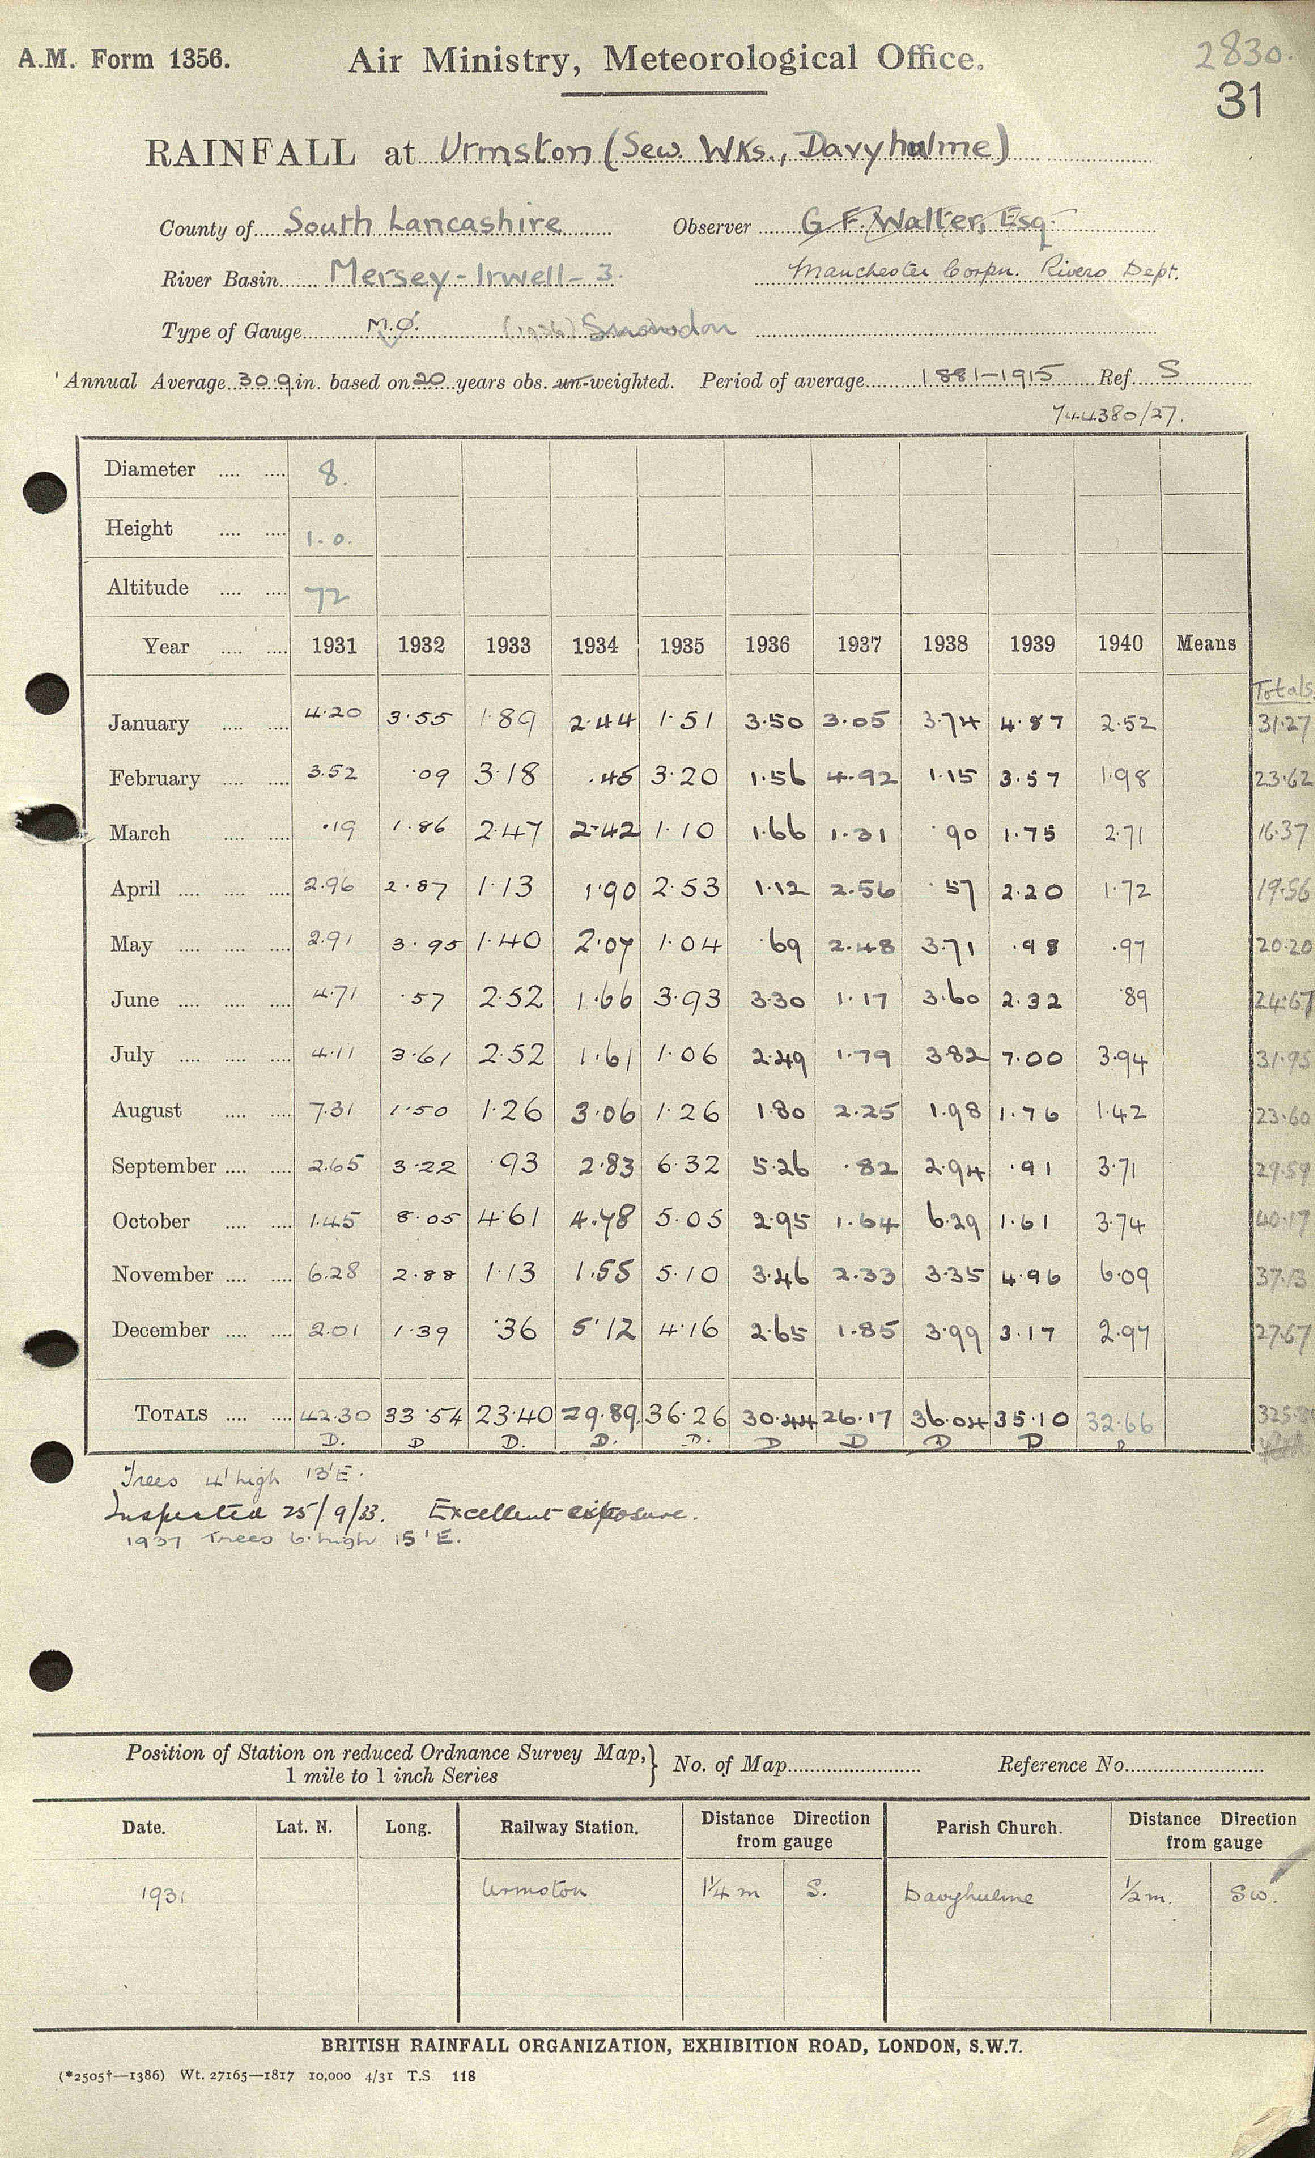 A.M. Form 1356. Air Ministry, Meteorological Office. 2830.
31
RAINFALL at Urmston (Sew. Wks., Davyhulme)
County of South Lancashire Observer G. F. Walter, Esq.
River Basin Mersey-Irwell-3. Manchester Corpn. Rivers Dept.
Type of Gauge M.O. (1936) Snowdon
Annual Average 30.9 in. based on 20 years obs. un-weighted. Period of average 1881-1915 Ref. S
744380/27.
Diameter 8.
Height 1.0.
Altitude 72
Year 1931 1932 1933 1934 1935 1936 1937 1938 1939 1940 Means
Totals
January 4.20 3.55 1.89 2.44 1.51 3.50 3.05 3.74 4.87 2.52 31.27
February 3.52 .09 3.18 .45 3.20 1.56 4.92 1.15 3.57 1.98 23.62
March .19 1.86 2.47 2.42 1.10 1.66 1.31 .90 1.75 2.71 16.37
April 2.96 2.87 1.13 1.90 2.53 1.12 2.56 .57 2.20 1.72 19.56
May 2.91 3.95 1.40 2.07 1.04 .69 2.48 3.71 .98 .97 20.20
June 4.71 .57 2.52 1.66 3.93 3.30 1.17 3.60 2.32 .89 24.67
July 4.11 3.61 2.52 1.61 1.06 2.49 1.79 3.82 7.00 3.94 31.95
August 7.31 1.50 1.26 3.06 1.26 1.80 2.25 1.98 1.76 1.42 23.60
September 2.65 3.22 .93 2.83 6.32 5.26 .82 2.94 .91 3.71 29.59
October 1.45 8.05 4.61 4.78 5.05 2.95 1.64 6.29 1.61 3.74 40.17
November 6.28 2.88 1.13 1.55 5.10 3.46 2.33 3.35 4.96 6.09 37.13
December 2.01 1.39 .36 5.12 4.16 2.65 1.85 3.99 3.17 2.97 27.67
TOTALS 42.30 33.54 23.40 29.89 36.26 30.44 26.17 36.04 35.10 32.66
D. D D. D. D. D D D D D
Trees 4' high 13' E.
Inspected 25/9/33. Excellent exposure.
1937 Trees 6' high 15' E.
Position of Station on reduced Ordnance Survey Map,
1 mile to 1 inch Series } No. of Map Reference No.
Date. Lat. N. Long. Railway Station. Distance Direction from gauge Parish Church. Distance Direction from gauge
1931 Urmston 1¼ m S. Davyhulme ½ m. SW.
BRITISH RAINFALL ORGANIZATION, EXHIBITION ROAD, LONDON, S.W.7.
(*2505†—1386) Wt. 27165—1817 10,000 4/31 T.S 118